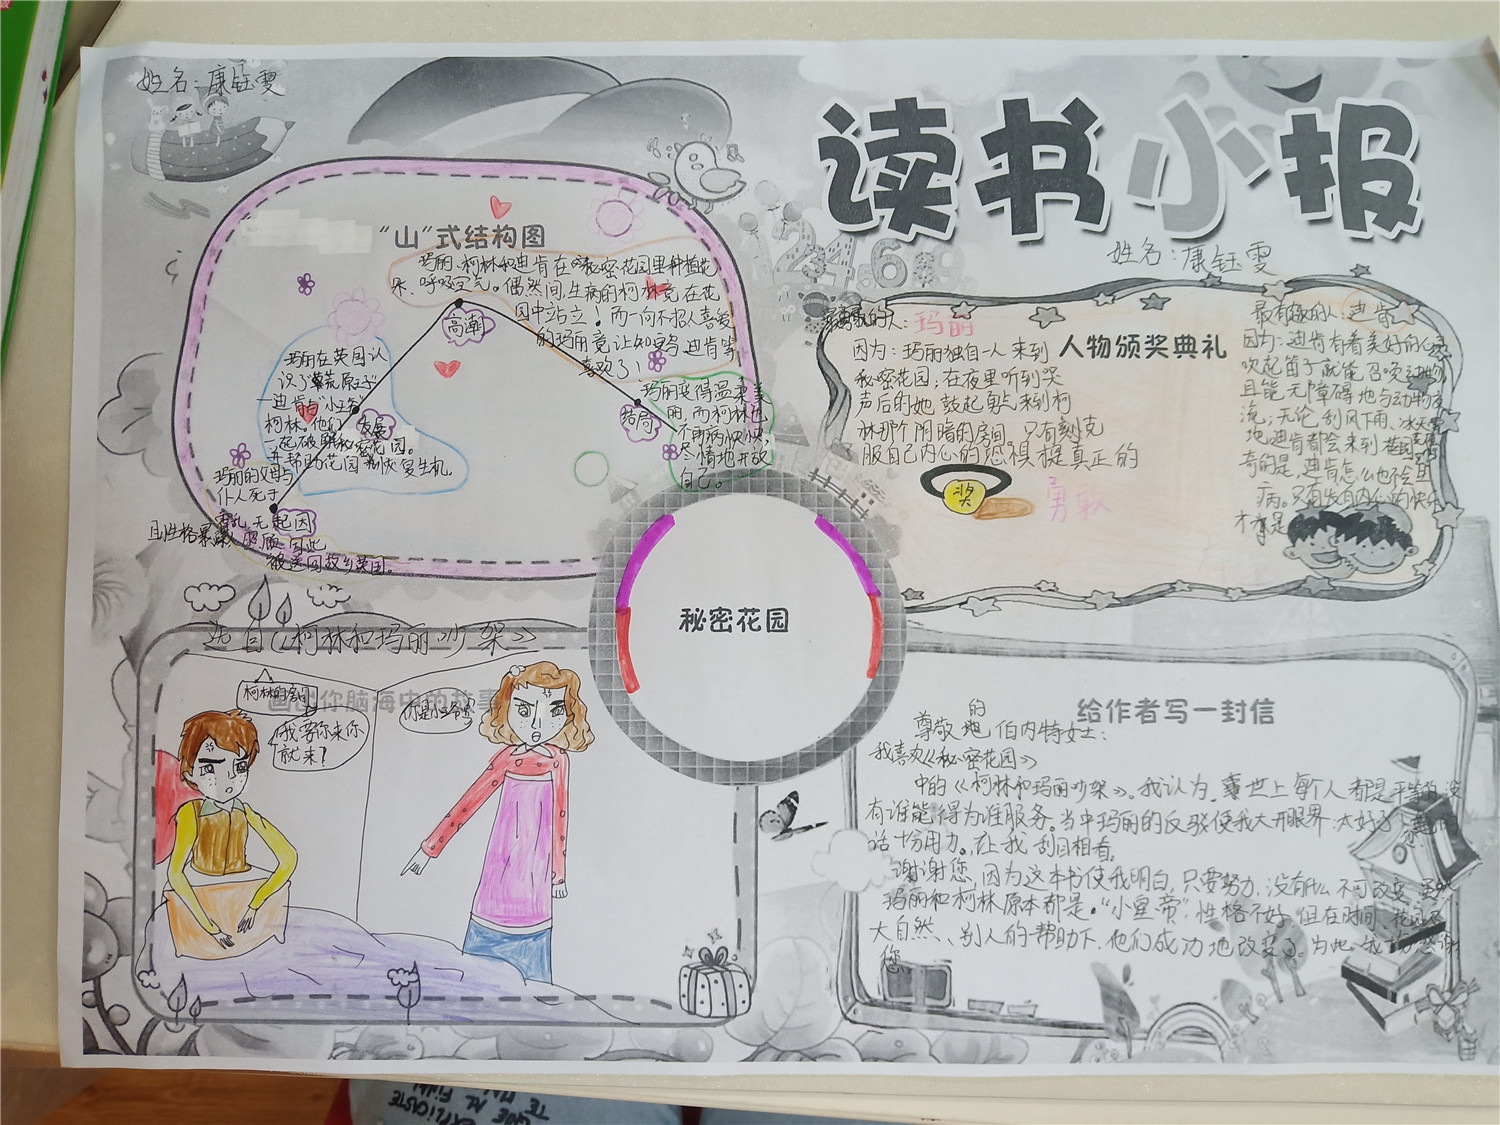 姓名：康钰雯
读书小报
姓名：康钰雯
“山”式结构图
玛丽、柯林和迪肯在秘密花园里种植花
朵、呼吸空气。偶然间，生病的柯林竟在花
园中站立！而一向不招人喜爱
的玛丽竟让知更鸟、迪肯等
喜欢了！
高潮
玛丽在英国认
识了“荒原王子”
—迪肯与“小王爷”
柯林。他们
一起破解秘密花园。
并帮助花园恢复生机。
发展
玛丽的父母与
仆人死于
霍乱，无
且性格暴躁
照顾，因此
被送回故乡英国。
起因
玛丽变得温柔美
丽，而柯林也
不再病怏怏，
尽情地开放
自己。
结局
人物颁奖典礼
最勇敢的人：玛丽
因为：玛丽独自一人来到
秘密花园；在夜里听到哭
声后的她鼓起勇气来到柯
林那个阴暗的房间。只有刻克
服自己内心的恐惧才是真正的
勇敢
奖
最有趣的人：迪肯
因为：迪肯有着美好的心灵
吹起笛子就能召唤动物
且能无障碍地与动物交
流；无论刮风下雨、冰天雪
地迪肯都会来到花园
奇的是，迪肯怎么也不会生
病。只有发自内心的快乐
才是
秘密花园
选自《柯林和玛丽吵架》
画出你脑海中的故事
柯林的房间
我要你来你
就来？
你是小爷
给作者写一封信
尊敬的伯内特女士：
我喜欢《秘密花园》
中的《柯林和玛丽吵架》。我认为，世上每个人都是平等的，没
有谁能得为谁服务。当中玛丽的反驳使我大开眼界，太好了
话十分用力。让我刮目相看。
谢谢您，因为这本书使我明白，只要努力，没有什么不可改变。虽然
玛丽和柯林原本都是“小皇帝”，性格不好，但在时间、花园及
大自然、别人的帮助下，他们成功地改变了。为此，我十分感谢
您。
EXPLICASTE
QUE AL FINAL
TE